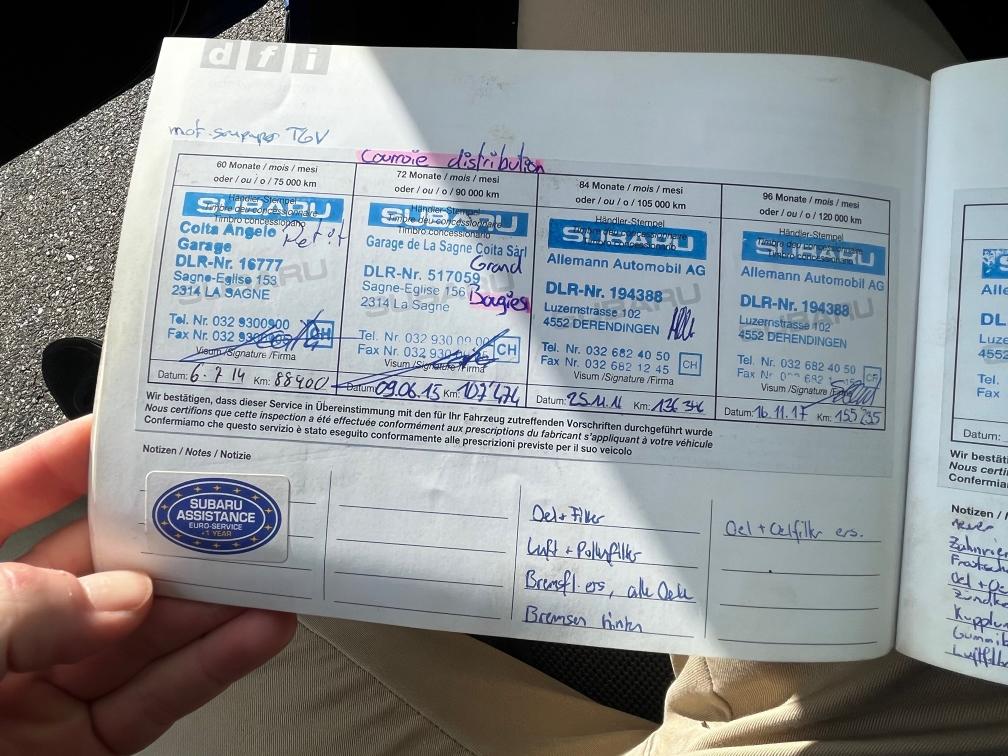 d f i
TGV
Courroie distribution
60 Monate / mois / mesi
oder / ou / o / 75 000 km
Händler-Stempel
SUBARU
Timbre du concessionnaire
Timbro concessionario
Coita Angelo
Petit
Garage
DLR-Nr. 16777
Sagne-Eglise 153
2314 LA SAGNE
Tel. Nr. 032 9300900
Fax Nr. 032
CH
Visum /Signature /Firma
Datum: 6. 7 14 Km: 88400
72 Monate / mois / mesi
oder / ou / o / 90 000 km
Händler-Stempel
SUBARU
Timbre du concessionnaire
Timbro concessionario
Garage de La Sagne Coita Sàrl
Grand
DLR-Nr. 517059
Sagne-Eglise 156
Bougies
2314 La Sagne
Tel. Nr. 032 930 00 00
Fax Nr. 032 930
CH
Visum /Signature /Firma
Datum: 09.06.15 Km: 107'474
84 Monate / mois / mesi
oder / ou / o / 105 000 km
Händler-Stempel
SUBARU
Timbre du concessionnaire
Timbro concessionario
Allemann Automobil AG
DLR-Nr. 194388
Luzernstrasse 102
4552 DERENDINGEN
Tel. Nr. 032 682 40 50
Fax Nr. 032 682 12 45
CH
Visum /Signature /Firma
Datum: 25.11.16 Km:
96 Monate / mois / mesi
oder / ou / o / 120 000 km
Händler-Stempel
SUBARU
Timbre du concessionnaire
Timbro concessionario
Allemann Automobil AG
DLR-Nr. 194388
Luzernstrasse 102
4552 DERENDINGEN
Tel. Nr. 032 682 40 50
Fax Nr. 682
Visum /Signature /Firma
Datum: 16.11.17 Km: 155 235
Wir bestätigen, dass dieser Service in Übereinstimmung mit den für Ihr Fahrzeug zutreffenden Vorschriften durchgeführt wurde
Nous certifions que cette inspection a été effectuée conformément aux prescriptions du fabricant s'appliquant à votre véhicule
Confermiamo che questo servizio è stato eseguito conformamente alle prescrizioni previste per il suo veicolo
Notizen / Notes / Notizie
SUBARU
ASSISTANCE
EURO-SERVICE
+1 YEAR
Oel + Filter
Luft + Pollenfilter
Bremsfl. ers, alle Oele
Bremsen hinten
Oel + Oelfilter ers.
Alle
DL
Luze
4552
Tel.
Fax
Datum:
Wir bestäti
Nous certi
Confermia
Notizen / N
Zahnrie
Oel + Oe
Zündke
Kupplun
Gummib
Luftfilte